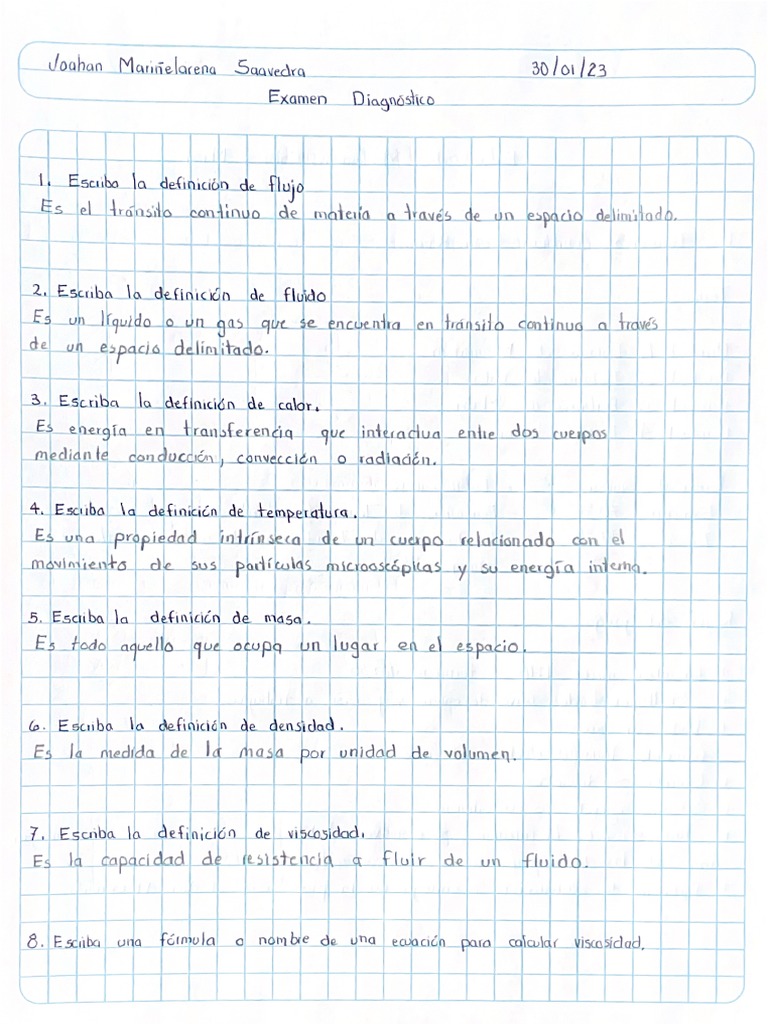 Joahan Mariñelarena Saavedra 30/01/23
Examen Diagnóstico
1. Escriba la definición de flujo
Es el tránsito continuo de materia a través de un espacio delimitado.
2. Escriba la definición de fluido
Es un líquido o un gas que se encuentra en tránsito continuo a través
de un espacio delimitado.
3. Escriba la definición de calor.
Es energía en transferencia que interactua entre dos cuerpos
mediante conducción, convección o radiación.
4. Escriba la definición de temperatura.
Es una propiedad intrínseca de un cuerpo relacionado con el
movimiento de sus partículas microoscópicas y su energía interna.
5. Escriba la definición de masa.
Es todo aquello que ocupa un lugar en el espacio.
6. Escriba la definición de densidad.
Es la medida de la masa por unidad de volumen.
7. Escriba la definición de viscosidad.
Es la capacidad de resistencia a fluir de un fluido.
8. Escriba una fórmula o nombre de una ecuación para calcular viscosidad.